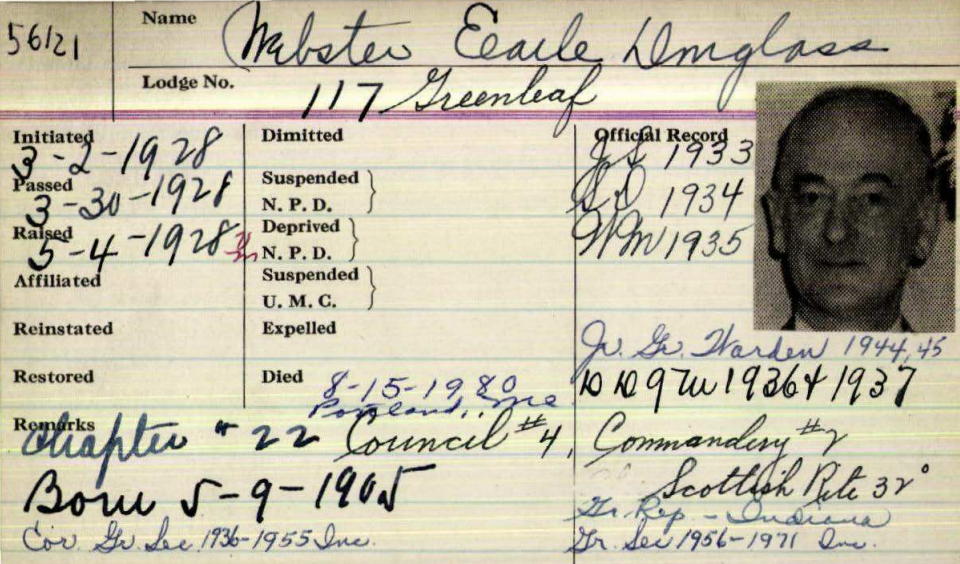 56121
Name Webster Earle Douglass
Lodge No. 117 Greenleaf
Initiated 3-2-1928
Passed 3-30-1928
Raised 5-4-1928
Affiliated
Reinstated
Restored
Dimitted
Suspended
N. P. D.
Deprived
N. P. D.
Suspended
U. M. C.
Expelled
Died 8-15-1980
Portland, Me
Official Record
JS 1933
SD 1934
WM 1935
Jr. Gr. Warden 1944, 45
DDGM 1936 + 1937
Remarks
Chapter # 22 Council #4, Commandery #2
Scottish Rite 32°
Born 5-9-1905
Gr. Rep - Indiana
Cor. Gr. Sec 1936-1955 Inc.
Gr. Sec 1956-1971 Inc.